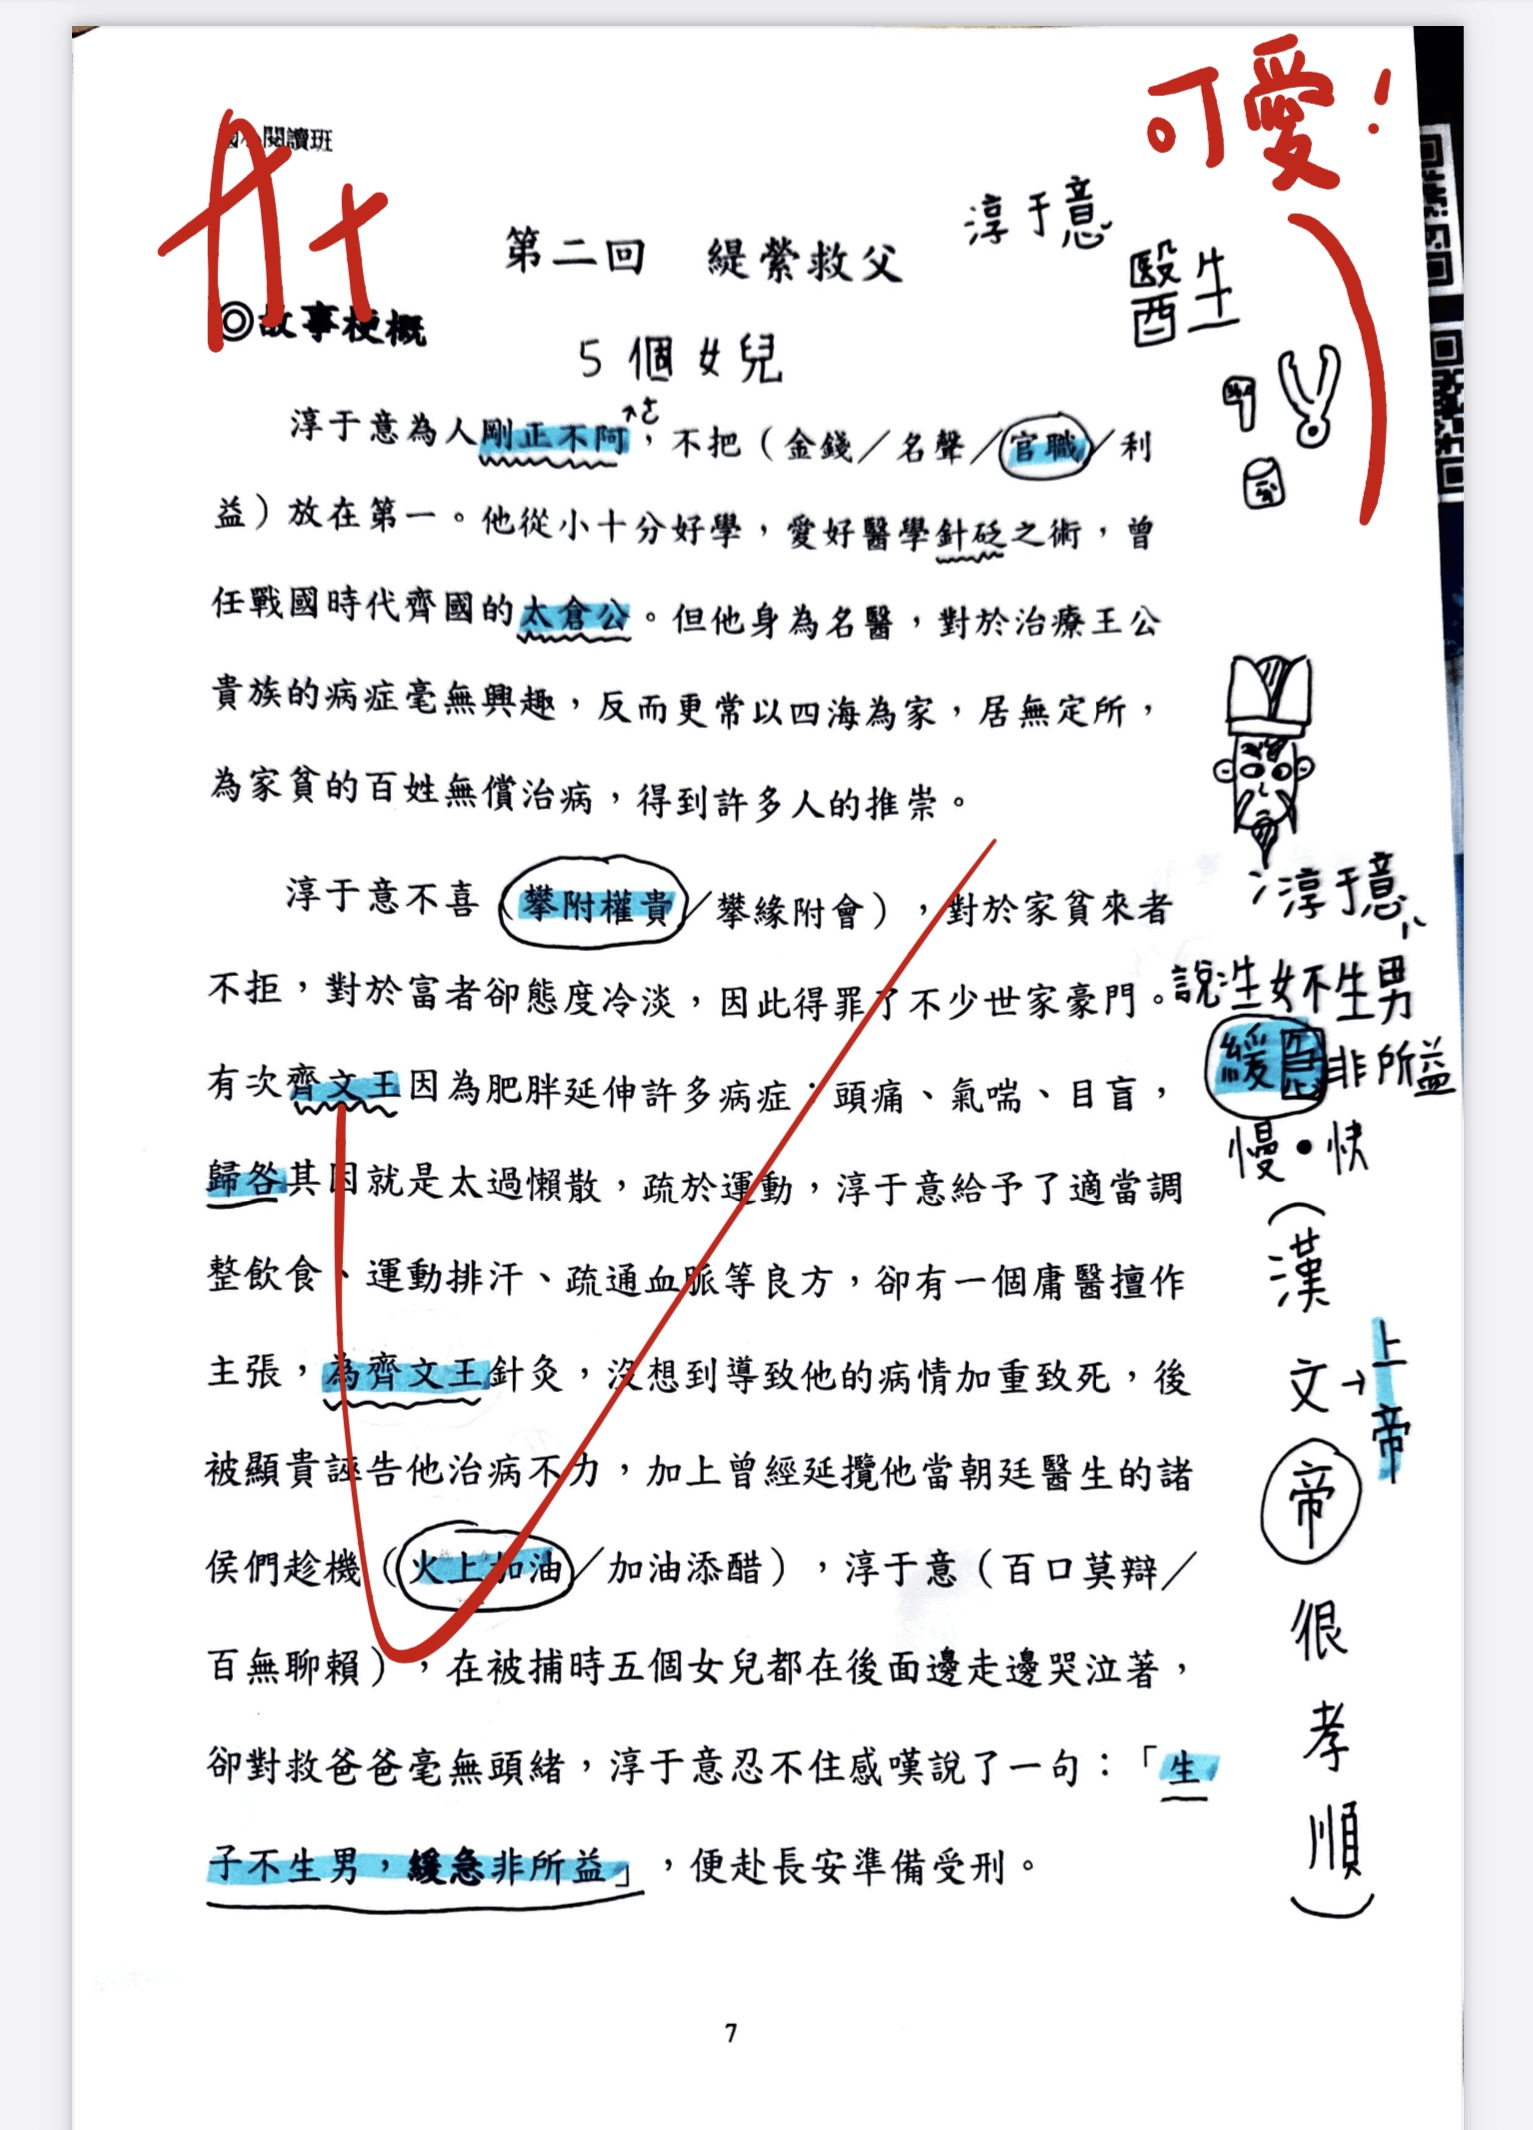 A+
可愛！
國小閱讀班
第二回　緹縈救父
淳于意
醫生
◎故事梗概
5個女兒
淳于意為人剛正不阿，不把（金錢／名聲／官職／利
ㄜ
益）放在第一。他從小十分好學，愛好醫學針砭之術，曾
任戰國時代齊國的太倉公。但他身為名醫，對於治療王公
貴族的病症毫無興趣，反而更常以四海為家，居無定所，
為家貧的百姓無償治病，得到許多人的推崇。
淳于意不喜（攀附權貴／攀緣附會），對於家貧來者
不拒，對於富者卻態度冷淡，因此得罪了不少世家豪門。
有次齊文王因為肥胖延伸許多病症：頭痛、氣喘、目盲，
歸咎其因就是太過懶散，疏於運動，淳于意給予了適當調
整飲食、運動排汗、疏通血脈等良方，卻有一個庸醫擅作
主張，為齊文王針灸，沒想到導致他的病情加重致死，後
被顯貴誣告他治病不力，加上曾經延攬他當朝廷醫生的諸
侯們趁機（火上加油／加油添醋），淳于意（百口莫辯／
百無聊賴），在被捕時五個女兒都在後面邊走邊哭泣著，
卻對救爸爸毫無頭緒，淳于意忍不住感嘆說了一句：「生
子不生男，緩急非所益」，便赴長安準備受刑。
淳于意
說：生女不生男
緩急非所益
慢・快
（漢文帝很孝順）
→上帝
7